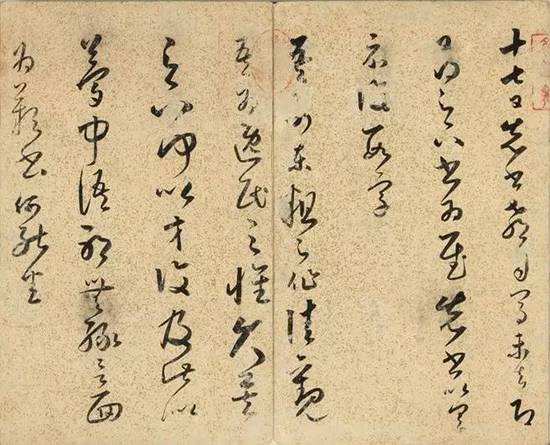 十七日先書郗司馬未去即
日得足下書為慰先書以具
示復數字
吾前東粗足作佳觀
吾為逸民之懷久矣
足下何以方復及此似
夢中語耶無緣言面
為歎書何能悉